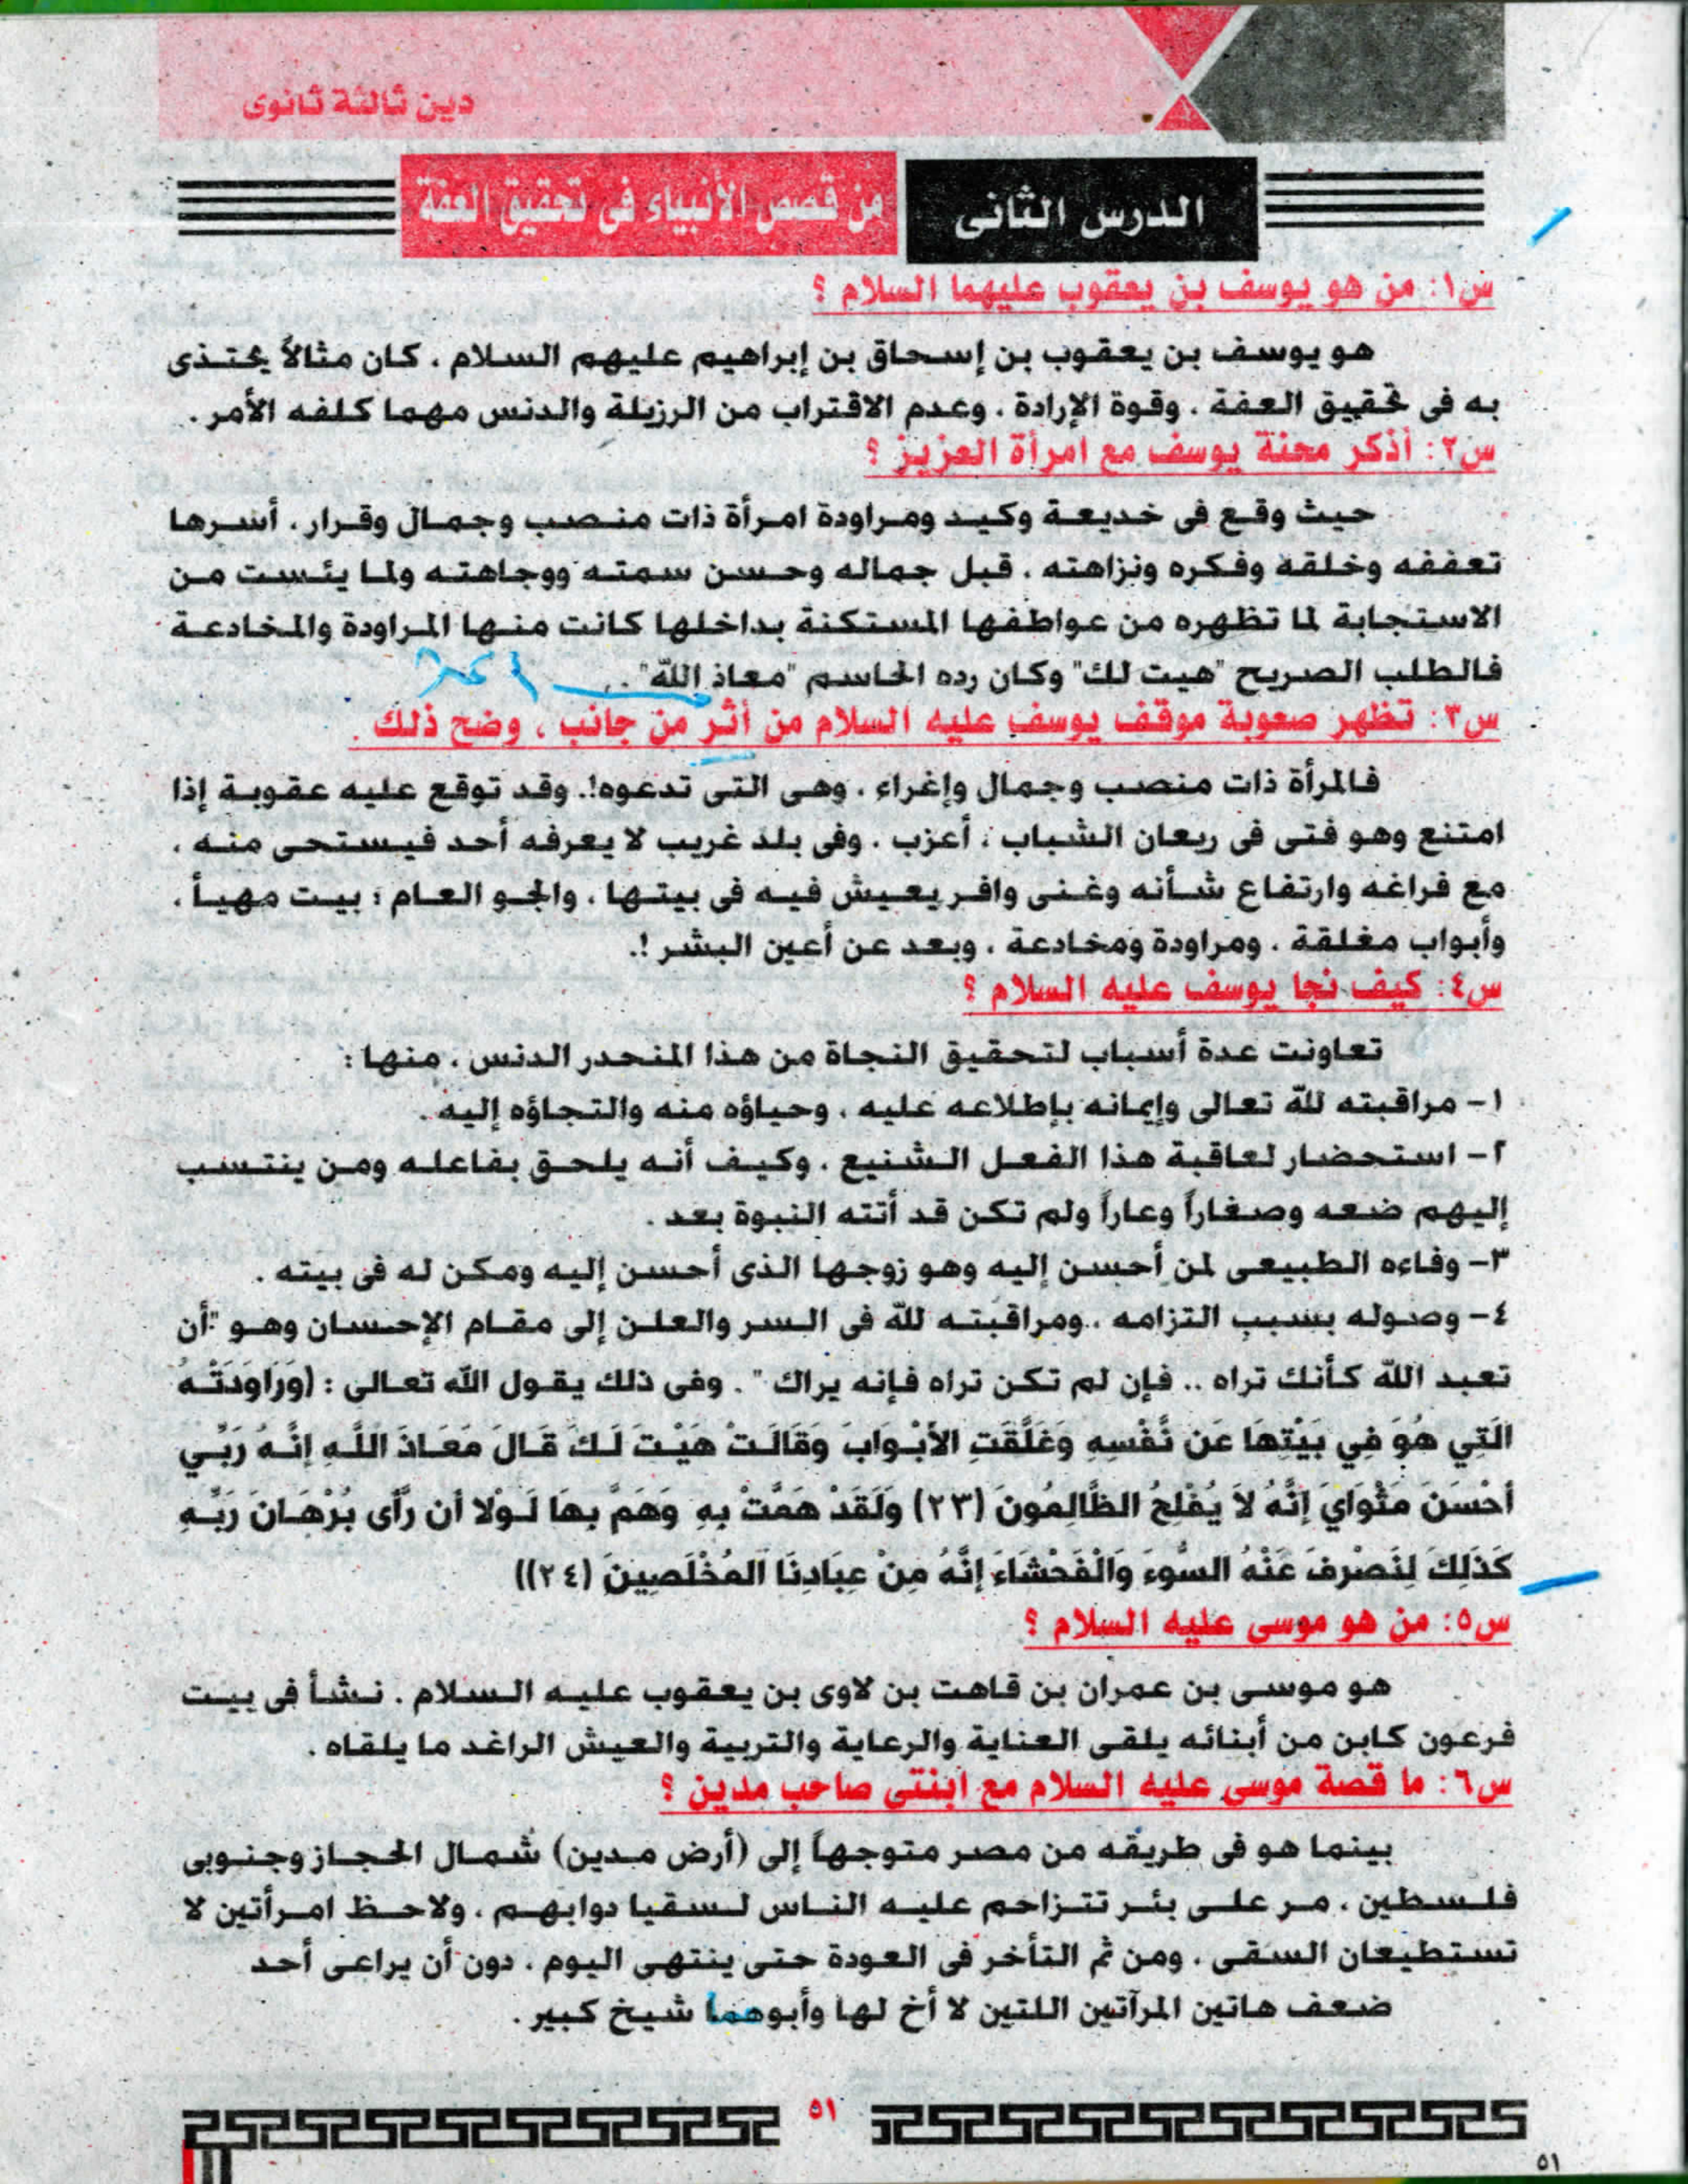 دين ثالثة ثانوى
الدرس الثانى
من قصص الأنبياء فى تحقيق العفة
س١: من هو يوسف بن يعقوب عليهما السلام ؟
هو يوسف بن يعقوب بن إسحاق بن إبراهيم عليهم السلام . كان مثالاً يحتذى
به فى تحقيق العفة . وقوة الإرادة . وعدم الاقتراب من الرزيلة والدنس مهما كلفه الأمر .
س٢: أذكر محنة يوسف مع امرأة العزيز ؟
حيث وقع فى خديعة وكيد ومراودة امرأة ذات منصب وجمال وقرار . أسرها
تعففه وخلقه وفكره ونزاهته . قبل جماله وحسن سمته ووجاهته ولما يئست من
الاستجابة لما تظهره من عواطفها المستكنة بداخلها كانت منها المراودة والمخادعة
فالطلب الصريح "هيت لك" وكان رده الحاسم "معاذ الله" .
س٣: تظهر صعوبة موقف يوسف عليه السلام من أثر من جانب ، وضح ذلك .
فالمرأة ذات منصب وجمال وإغراء . وهى التى تدعوه!. وقد توقع عليه عقوبة إذا
امتنع وهو فتى فى ريعان الشباب . أعزب . وفى بلد غريب لا يعرفه أحد فيستحى منه .
مع فراغه وارتفاع شأنه وغنى وافر يعيش فيه فى بيتها . والجو العام : بيت مهيأ .
وأبواب مغلقة . ومراودة ومخادعة . وبعد عن أعين البشر !.
س٤: كيف نجا يوسف عليه السلام ؟
تعاونت عدة أسباب لتحقيق النجاة من هذا المنحدر الدنس . منها :
١- مراقبته لله تعالى وإيمانه بإطلاعه عليه . وحياؤه منه والتجاؤه إليه .
٢- استحضار لعاقبة هذا الفعل الشنيع . وكيف أنه يلحق بفاعله ومن ينتسب
إليهم ضعه وصغاراً وعاراً ولم تكن قد أتته النبوة بعد .
٣- وفاءه الطبيعى لمن أحسن إليه وهو زوجها الذى أحسن إليه ومكن له فى بيته .
٤- وصوله بسبب التزامه . ومراقبته لله فى السر والعلن إلى مقام الإحسان وهو "أن
تعبد الله كأنك تراه .. فإن لم تكن تراه فإنه يراك " . وفى ذلك يقول الله تعالى : (وَرَاوَدَتْهُ
الَتِي هُوَ فِي بَيْتِهَا عَن نَّفْسِهِ وَغَلَّقَتِ الأَبْوَابَ وَقَالَتْ هَيْتَ لَكَ قَالَ مَعَاذَ اللَّهِ إِنَّهُ رَبِّي
أَحْسَنَ مَثْوَايَ إِنَّهُ لاَ يُفْلِحُ الظَّالِمُونَ (٢٣) وَلَقَدْ هَمَّتْ بِهِ وَهَمَّ بِهَا لَوْلا أَن رَّأَى بُرْهَانَ رَبِّهِ
كَذَلِكَ لِنَصْرِفَ عَنْهُ السُّوءَ وَالْفَحْشَاءَ إِنَّهُ مِنْ عِبَادِنَا الْمُخْلَصِينَ (٢٤))
س٥: من هو موسى عليه السلام ؟
هو موسى بن عمران بن قاهت بن لاوى بن يعقوب عليه السلام . نشأ فى بيت
فرعون كابن من أبنائه يلقى العناية والرعاية والتربية والعيش الراغد ما يلقاه .
س٦: ما قصة موسى عليه السلام مع ابنتى صاحب مدين ؟
بينما هو فى طريقه من مصر متوجهاً إلى (أرض مدين) شمال الحجاز وجنوبى
فلسطين . مر على بئر تتزاحم عليه الناس لسقيا دوابهم . ولاحظ امرأتين لا
تستطيعان السقى . ومن ثم التأخر فى العودة حتى ينتهى اليوم . دون أن يراعى أحد
ضعف هاتين المرآتين اللتين لا أخ لها وأبوهما شيخ كبير .
٥١
٥١